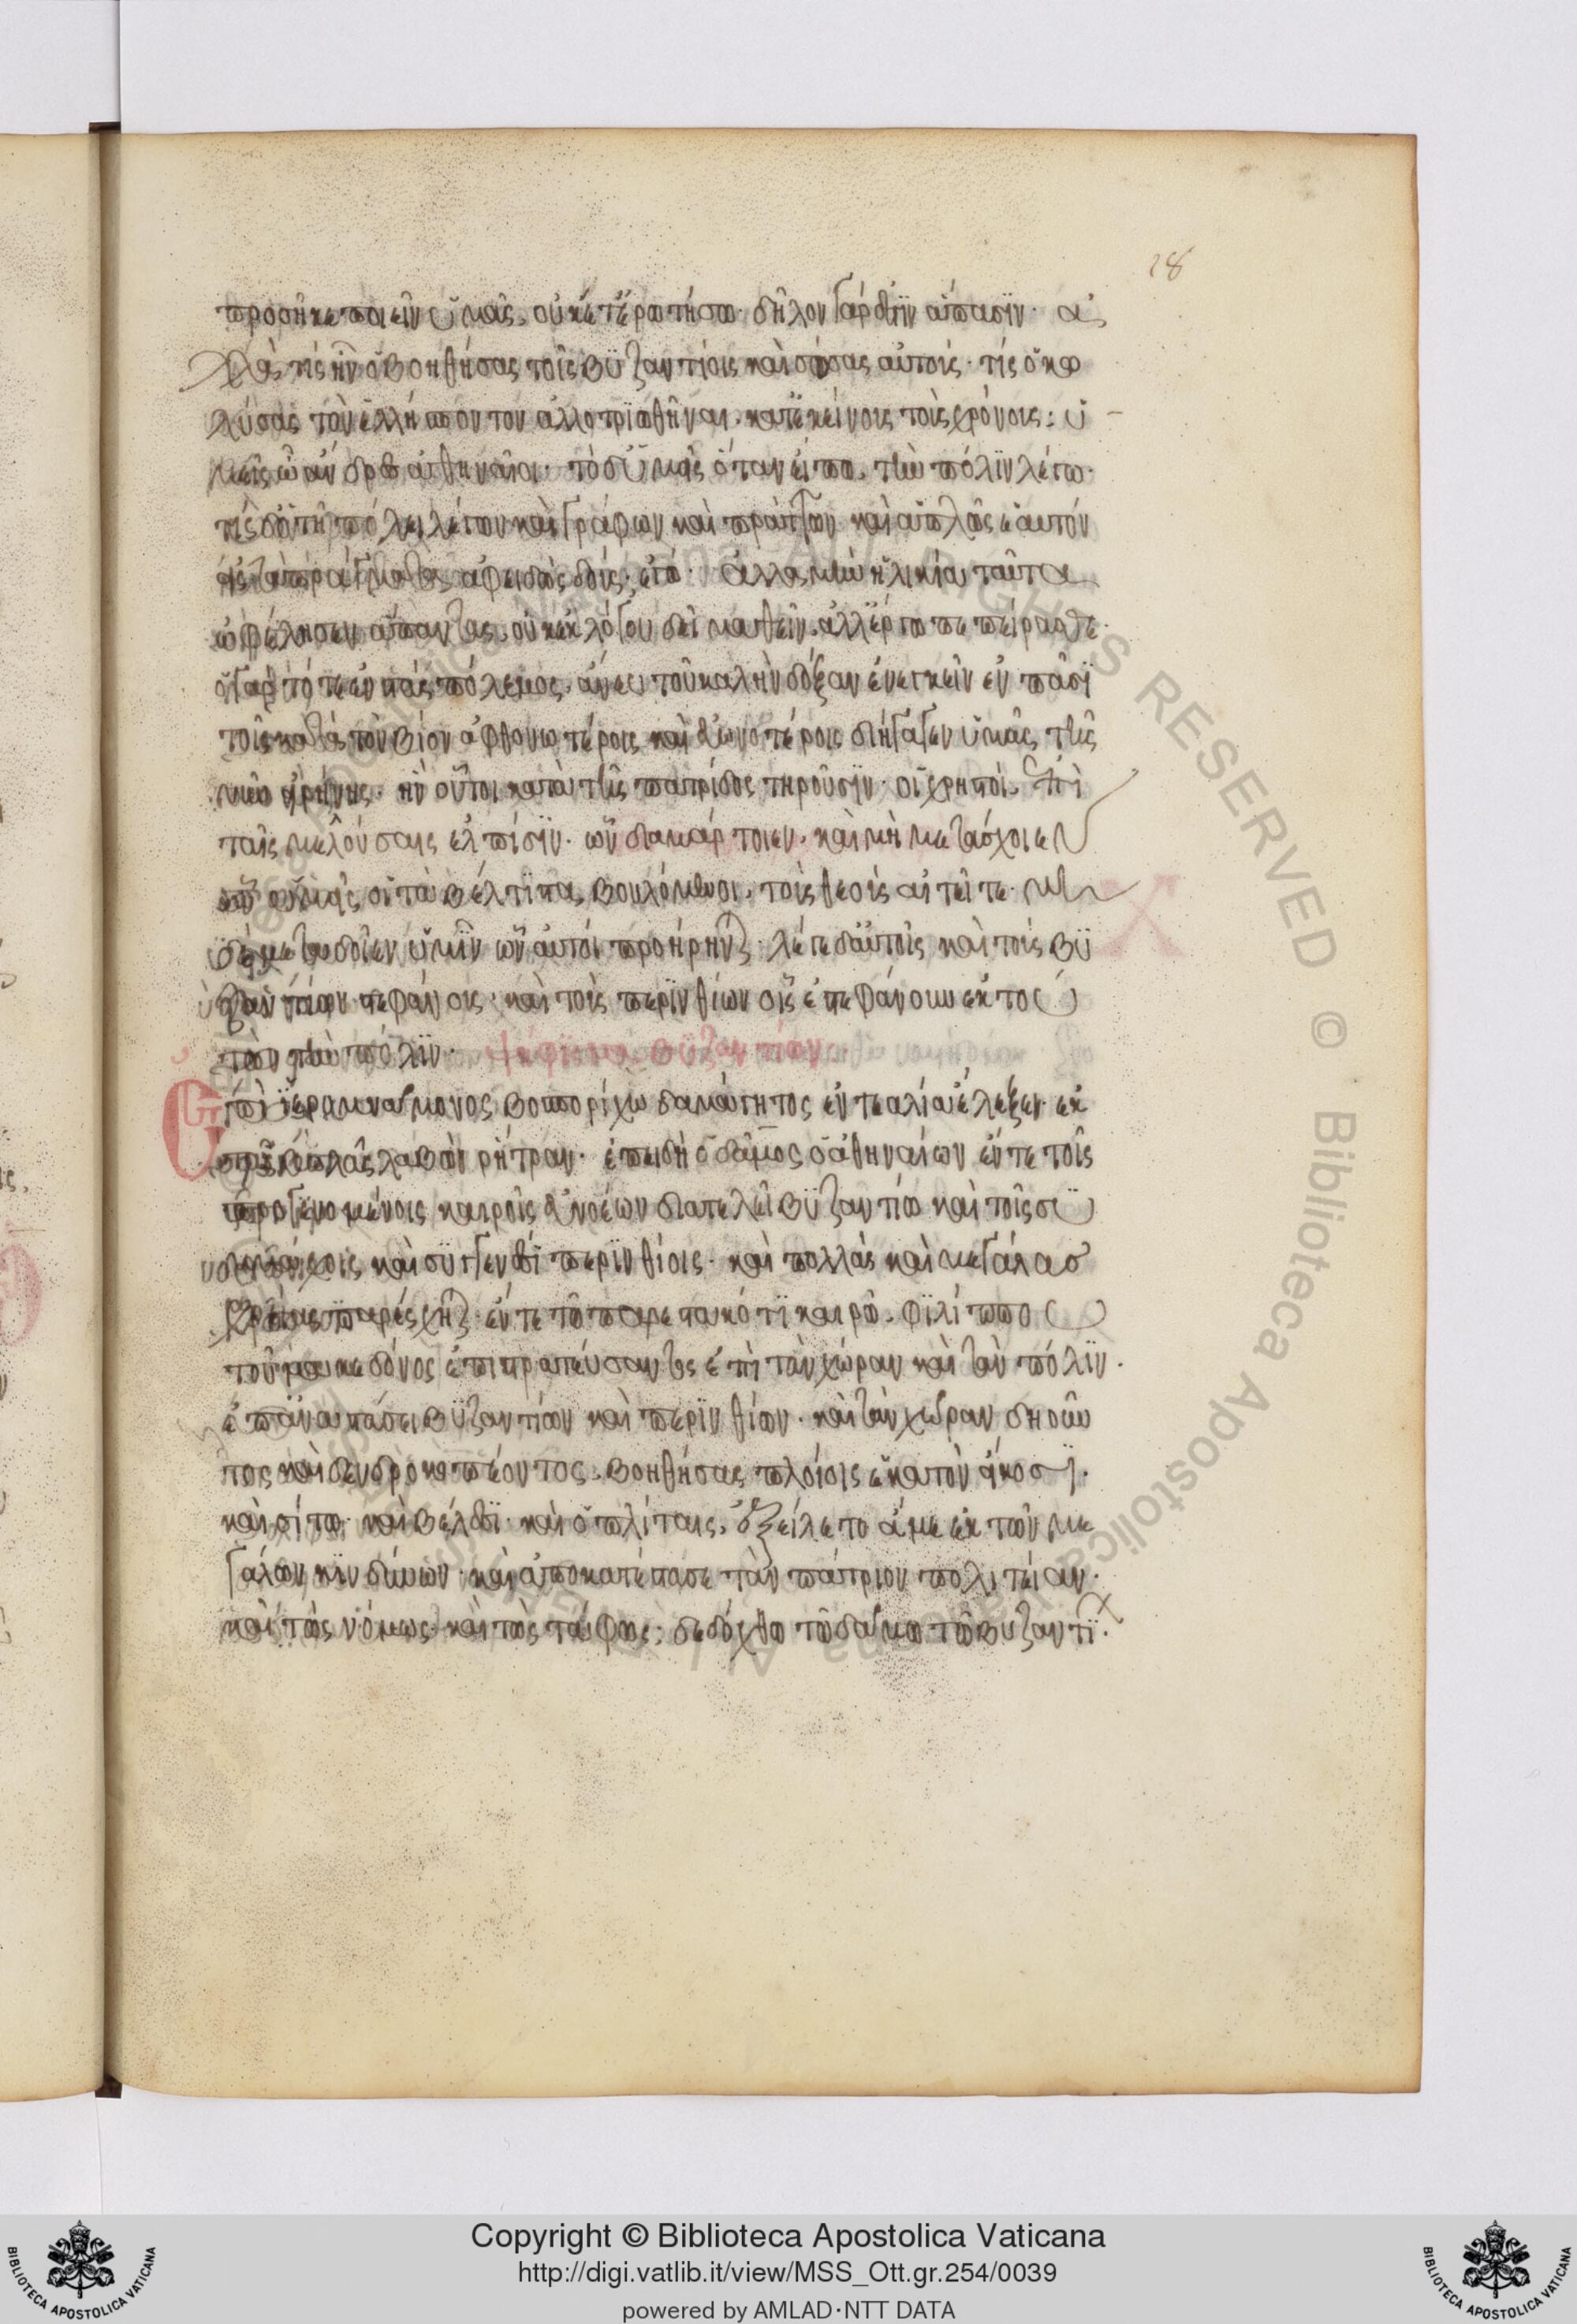 18
προσῆκε ποιεῖν ὑμᾶς, οὐκέτ' ἐρωτήσω· δῆλον γάρ ἐστιν ἅπασιν· ἀλ
λὰ τίς ἦν ὁ βοηθήσας τοῖς βυζαντίοις καὶ σώσας αὐτούς· τίς ὁ κω
λύσας τὸν ἑλλήσποντον ἀλλοτριωθῆναι, κατ' ἐκείνους τοὺς χρόνους; ὑ
μεῖς ὦ ἄνδρες ἀθηναῖοι· τὸ δ' ὑμεῖς ὅταν εἴπω, τὴν πόλιν λέγω·
τίς δ' ὁ τῇ πόλει λέγων καὶ γράφων καὶ πράττων καὶ ἁπλῶς ἑαυτόν
εἰς τὰ πράγματα ἀφειδῶς δούς; ἐγώ· ἀλλὰ μὴν ἡλίκα ταῦτα
ὠφέλησεν ἅπαντας, οὐκ ἐκ λόγου δεῖ μαθεῖν, ἀλλ' ἔργῳ πεπείρασθε·
ὁ γὰρ τότε ἐνστὰς πόλεμος, ἄνευ τοῦ καλὴν δόξαν ἐνεγκεῖν ἐν πᾶσι
τοῖς κατὰ τὸν βίον ἀφθονωτέροις καὶ εὐωνοτέροις διήγαγεν ὑμᾶς τῆς
νῦν εἰρήνης· ἣν οὗτοι κατὰ τῆς πατρίδος τηροῦσιν· οἱ χρηστοί, ἐπὶ
ταῖς μελλούσαις ἐλπίσιν· ὧν διαμάρτοιεν, καὶ μὴ μετάσχοιεν
ὧν ὑμεῖς οἱ τὰ βέλτιστα βουλόμενοι, τοὺς θεοὺς αἰτεῖτε· μὴ
δὲ μεταδοῖεν ὑμῖν ὧν αὐτοὶ προῄρηνται· λέγε δ' αὐτοῖς καὶ τοὺς βυ
ζαντίων στεφάνους· καὶ τοὺς περινθίων οἷς ἐστεφάνουν ἐκ τού
των τὴν πόλιν· ψήφισμα βυζαντίων·
Ἐπὶ ἱερομνάμονος βοσπορίχω δαμάγητος ἐν τᾷ ἁλίᾳ ἔλεξεν ἐκ
τᾶς βωλᾶς λαβὼν ῥήτραν· ἐπειδὴ ὁ δᾶμος ὁ ἀθηναίων ἔν τε τοῖς
προγενομένοις καιροῖς εὐνοέων διατελεῖ βυζαντίοις καὶ τοῖς συ
μμάχοις καὶ συγγενέσι περινθίοις· καὶ πολλὰς καὶ μεγάλας
χρείας παρέσχηται· ἔν τε τῷ παρεστακότι καιρῷ, φιλίππου
τοῦ μακεδόνος ἐπιστρατεύσαντος ἐπὶ τὰν χώραν καὶ τὰν πόλιν·
ἐπ' ἀναστάσει βυζαντίων καὶ περινθίων· καὶ τὰν χώραν δηοῦν
τος καὶ δενδροκοπέοντος, βοηθήσας πλοίοις ἑκατὸν εἴκοσι·
καὶ σίτῳ· καὶ βέλεσι· καὶ ὁπλίταις, ἐξείλετο ἁμὲ ἐκ τῶν με
γάλων κινδύνων· καὶ ἀποκατέστασε τὰν πάτριον πολιτείαν·
καὶ τὼς νόμως καὶ τὼς τάφως; δεδόχθω τῷ δάμῳ τῷ βυζαντί·
Copyright © Biblioteca Apostolica Vaticana
http://digi.vatlib.it/view/MSS_Ott.gr.254/0039
powered by AMLAD·NTT DATA